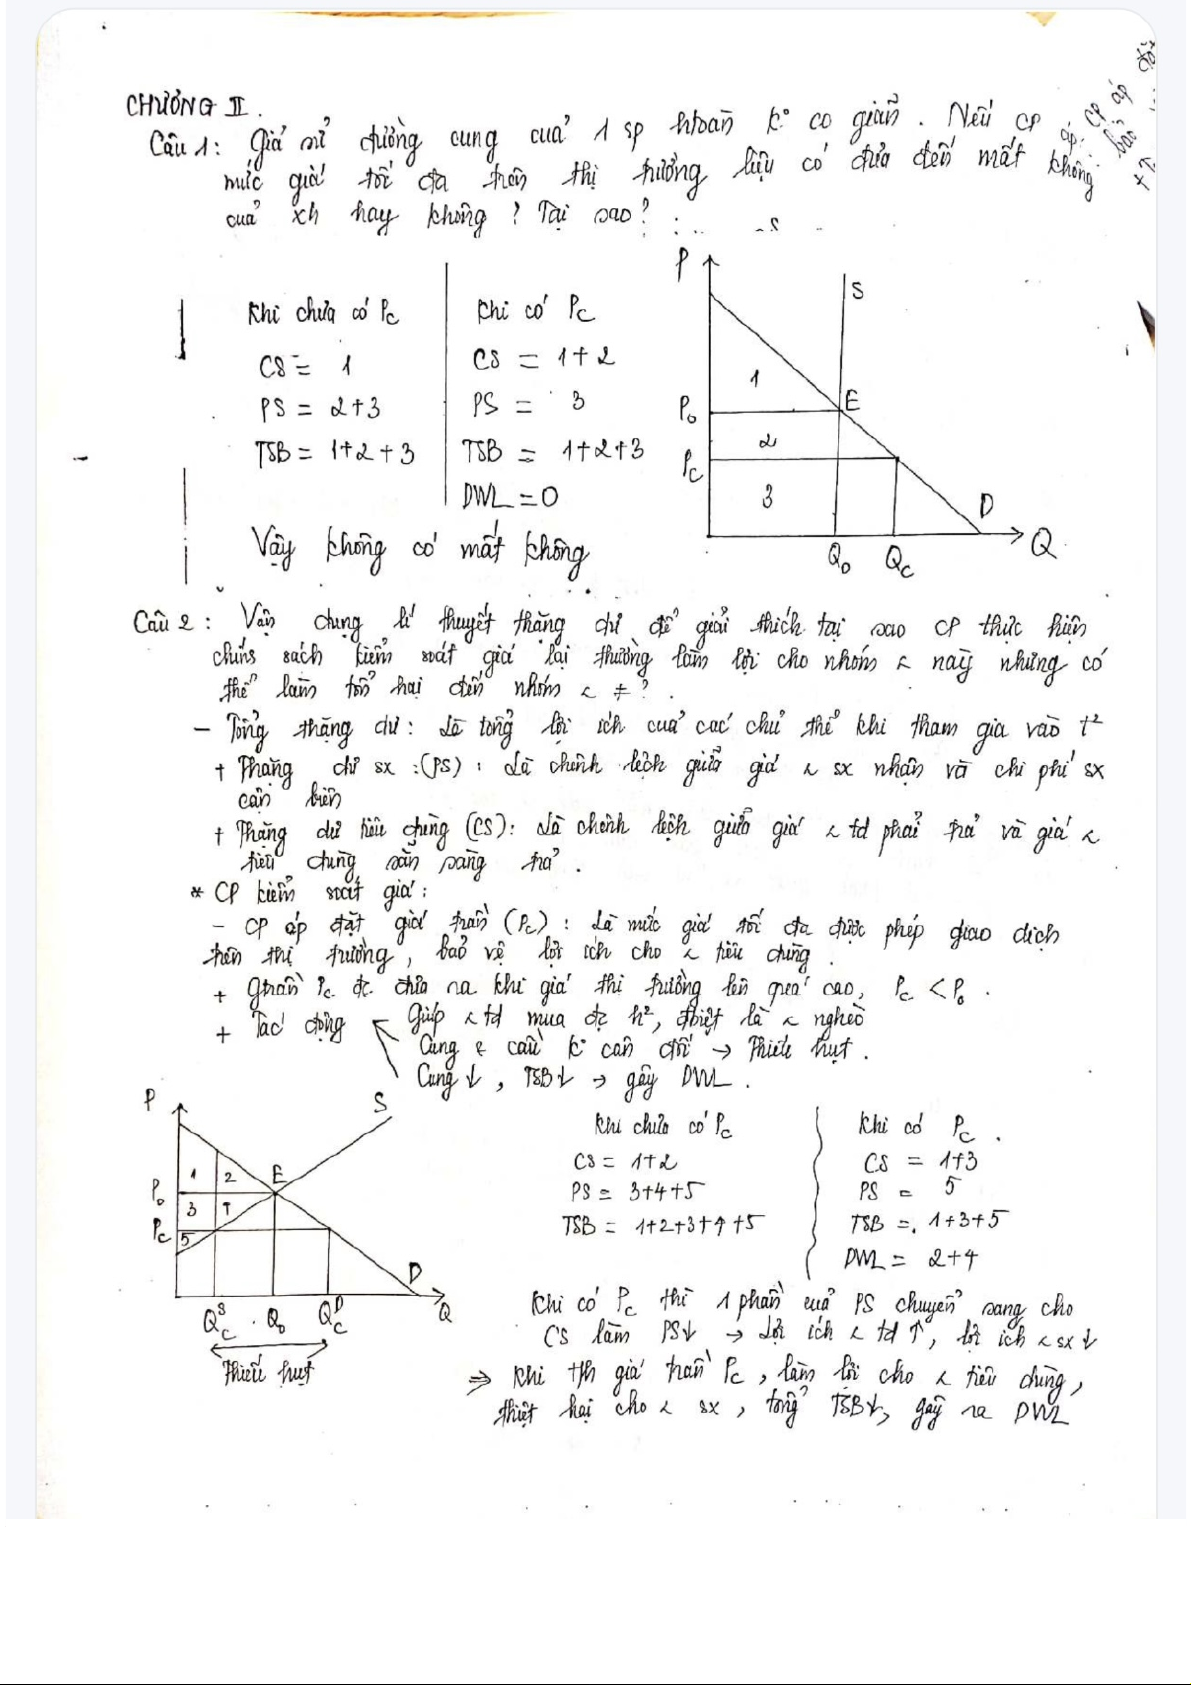 CHƯƠNG II.
Câu 1: Giả sử đường cung của 1 sp hoàn k° co giãn. Nếu CP áp
mức giá tối đa trên thị trường liệu có đưa đến mất không
của xh hay không? Tại sao?
Khi chưa có Pc
CS = 1
PS = 2+3
TSB = 1+2+3
Khi có Pc
CS = 1+2
PS = 3
TSB = 1+2+3
DWL = 0
Vậy không có mất không
P
S
1
P₀
E
2
Pc
3
D
Q₀
Qc
Q
Câu 2: Vận dụng lí thuyết thặng dư để giải thích tại sao CP thực hiện
chính sách kiểm soát giá lại thường làm lợi cho nhóm này nhưng có
thể làm tổn hại đến nhóm ≠?
- Tổng thặng dư: Là tổng lợi ích của các chủ thể khi tham gia vào t²
+ Thặng dư sx : (PS) : Là chênh lệch giữa giá sx nhận và chi phí sx
cận biên
+ Thặng dư tiêu dùng (CS): Là chênh lệch giữa giá td phải trả và giá
tiêu dùng sẵn sàng trả.
* CP kiểm soát giá:
- CP áp đặt giá trần (Pc) : Là mức giá tối đa được phép giao dịch
trên thị trường, bảo vệ lợi ích cho tiêu dùng.
+ Gtrần Pc đc đưa ra khi giá thị trường lên quá cao, Pc < P₀.
+ Tác động
Giúp td mua đc h², đbiệt là nghèo
Cung & cầu k° cân đối → Thiếu hụt.
Cung ↓, TSB↓ → gây DWL.
P
S
1
2
E
P₀
3
4
Pc
5
D
Qcˢ
Q₀
Qcᴰ
Q
Thiếu hụt
Khi chưa có Pc
CS = 1+2
PS = 3+4+5
TSB = 1+2+3+4+5
Khi có Pc.
CS = 1+3
PS = 5
TSB = 1+3+5
DWL = 2+4
Khi có Pc thì 1 phần của PS chuyển sang cho
CS làm PS↓ → Lợi ích td ↑, lợi ích sx ↓
⇒ Khi th giá trần Pc, làm lợi cho tiêu dùng,
thiệt hại cho sx, tổng TSB↓, gây ra DWL